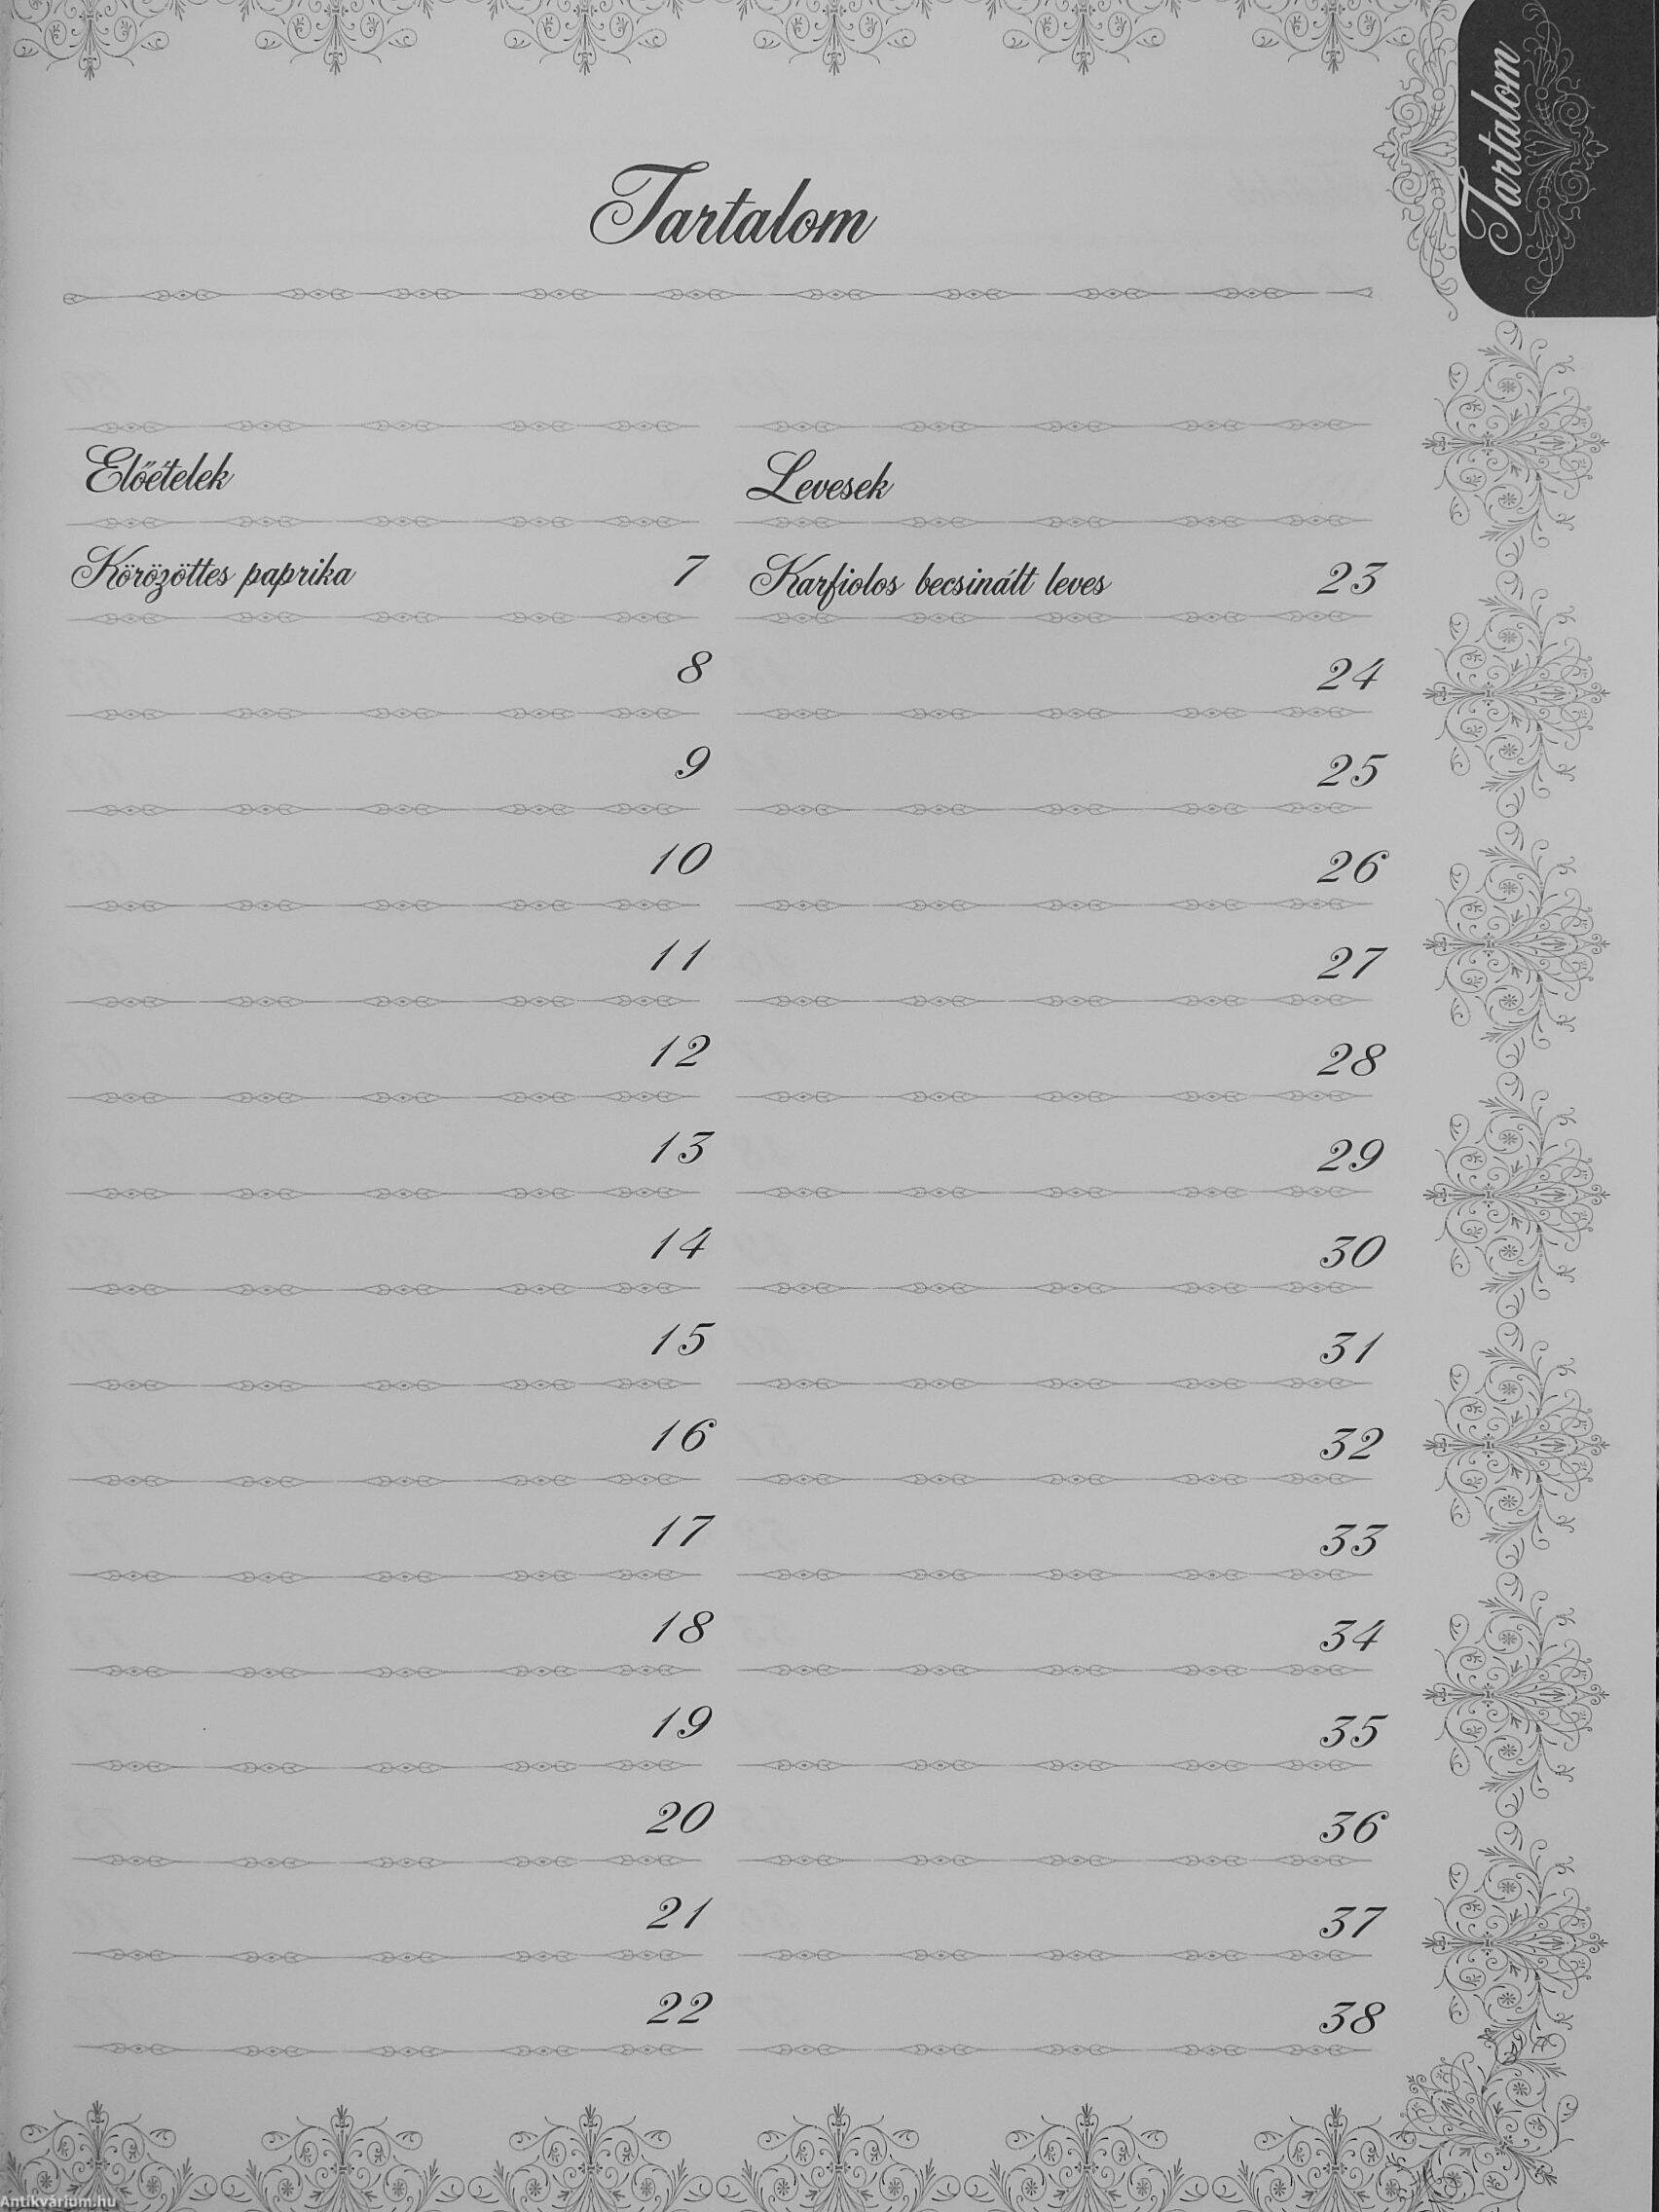 Tartalom
Tartalom
Előételek
Körözöttes paprika 7
8
9
10
11
12
13
14
15
16
17
18
19
20
21
22
Levesek
Karfiolos becsinált leves 23
24
25
26
27
28
29
30
31
32
33
34
35
36
37
38
Antikvárium.hu